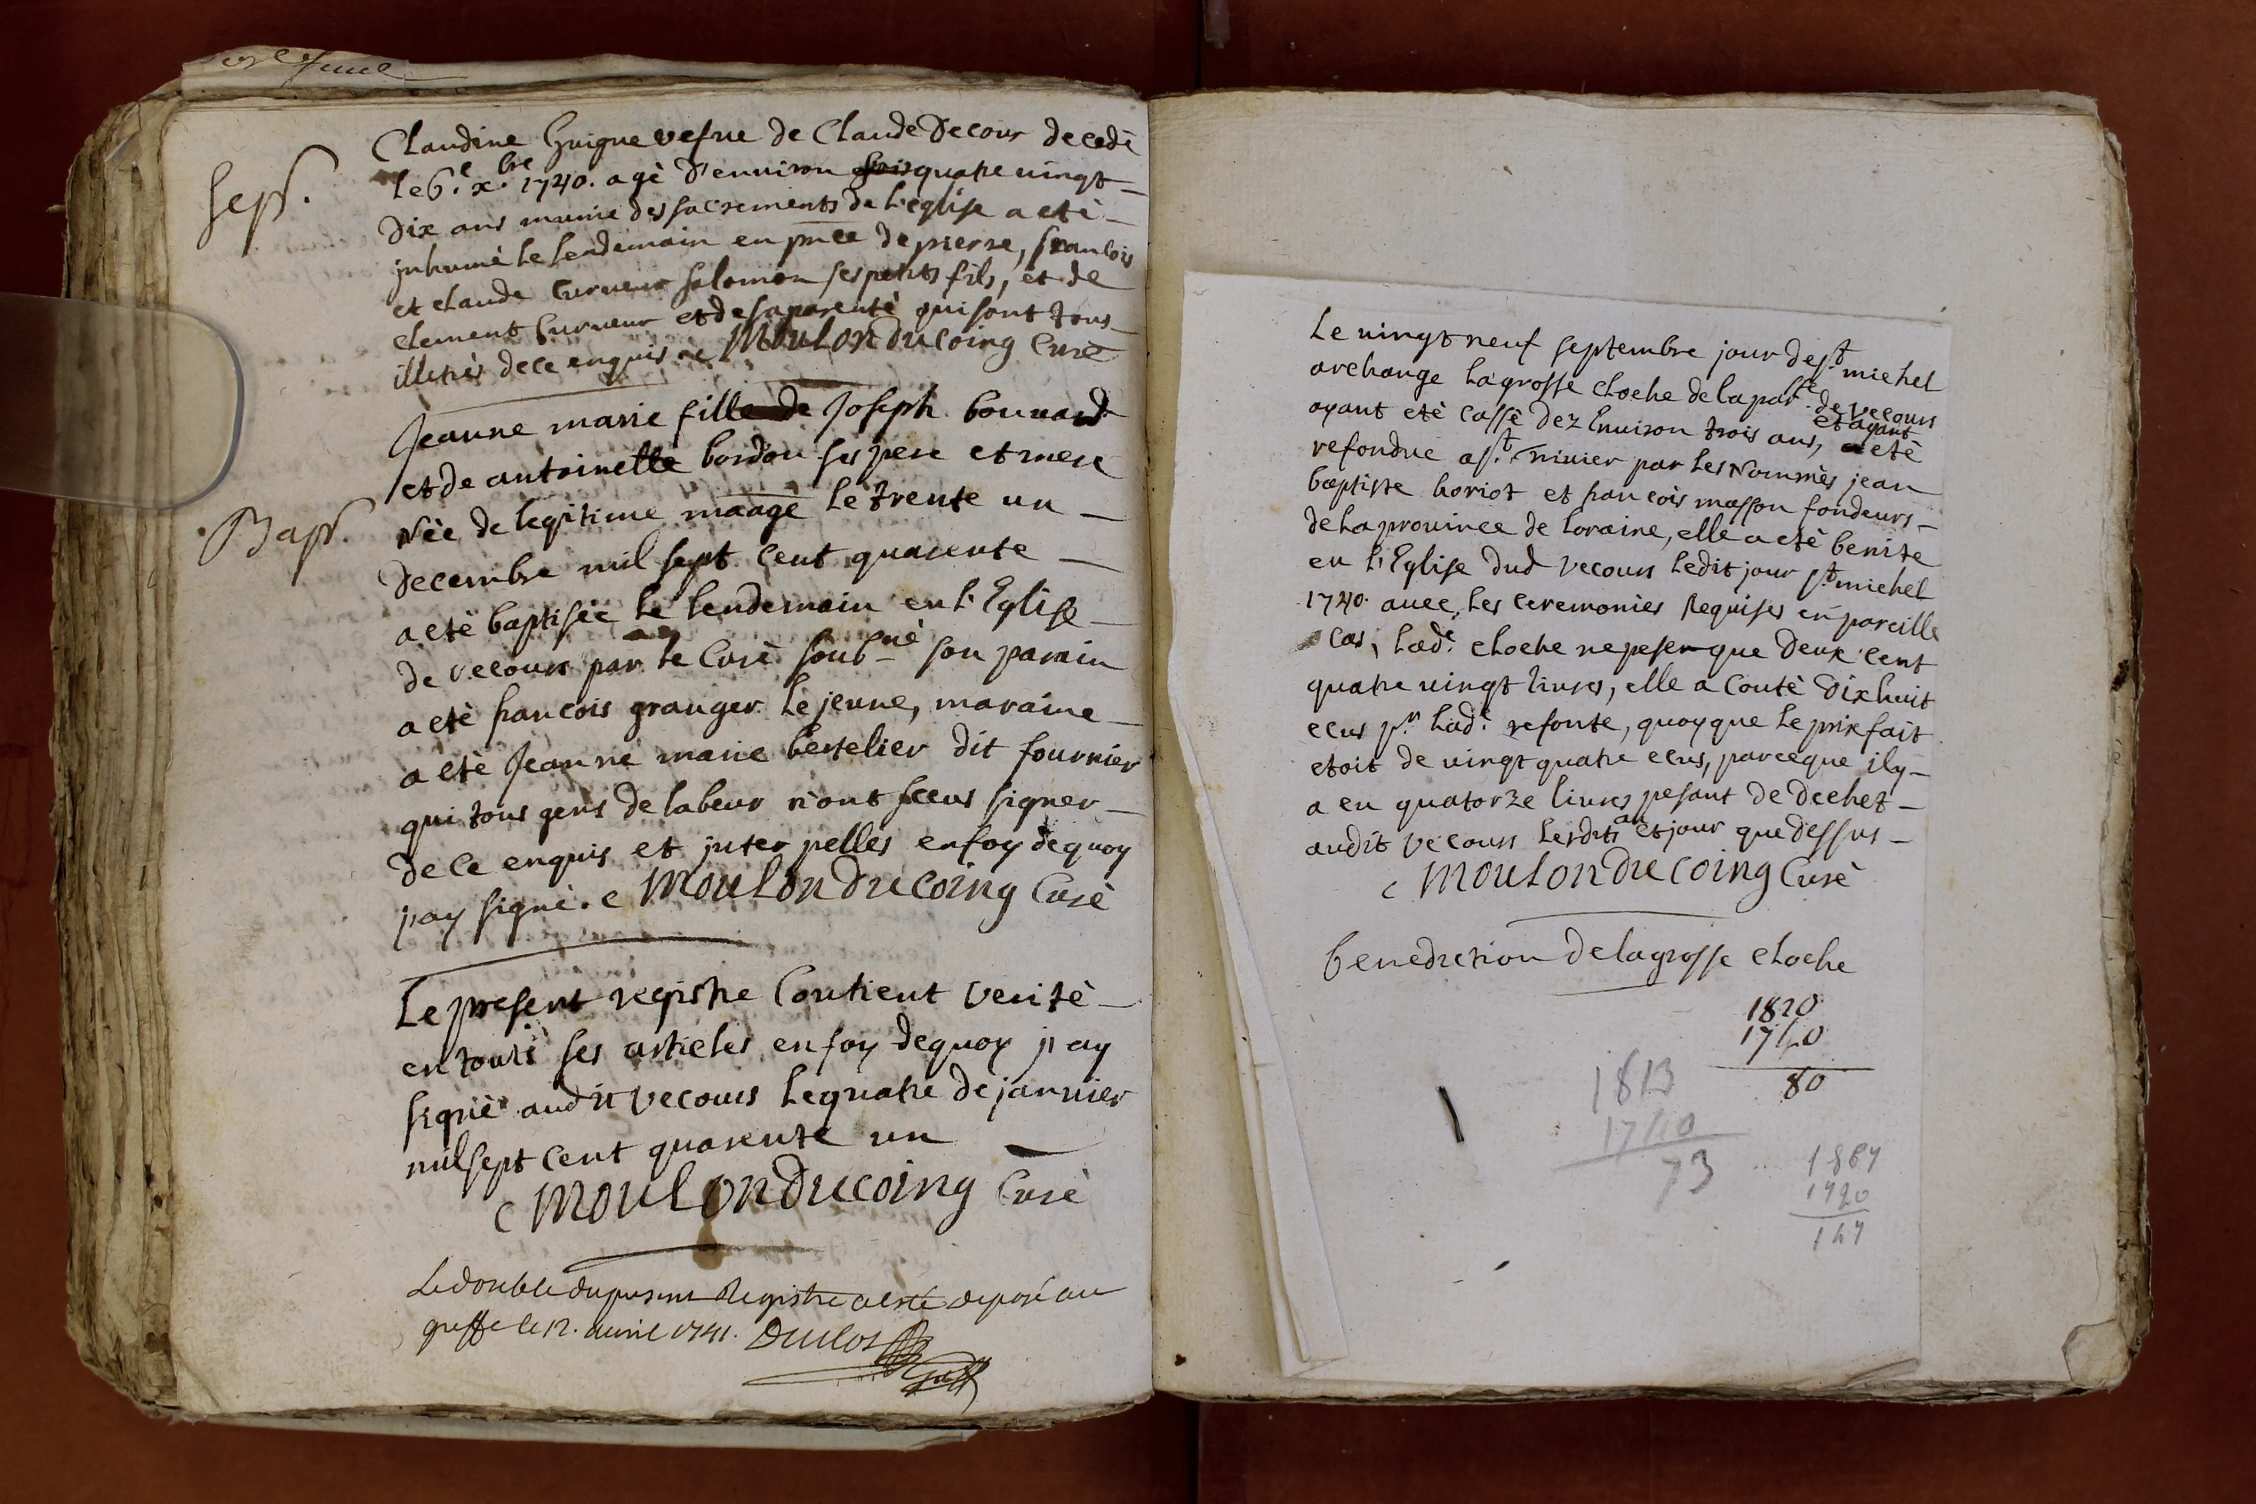 Sep.
Claudine Guigue vefue de Claude Decour decedè
le 6.e xbre 1740. agè d'environ quatre vingt
dix ans munie des sacrements de l'eglise a etè
inhumè le lendemain en pnce de pierre, francois
et claude curveur salomon ses petits fils, et de
clement curveur et de sa parentè qui sont tous
illitrès de ce enquis c Moulonducoing Curè
Bap.
Jeanne marie fille de Joseph bouvard
et de antoinette bordou ses pere et mere
Nèe de legitime maage le trente un
Decembre mil sept cent quarente
a etè baptisèe le lendemain en l'Eglise
de vecours par le Curè soub.nè son parain
a etè francois granger le jeune, maraine
a etè Jeanne marie bertelier dit fournier
qui tous gens de labeur n'ont sceus signer
de ce enquis et interpelles en foy de quoy
j'ay signè. c Moulonducoing Curè
Le present registre Contient veritè
en touts ses articles en foy de quoy j'ay
signè audit vecours le quatre de janvier
mil sept cent quarente un
c Moulonducoing Curè
Le double du present Registre a esté deposé au
greffe le 12. avril 1741. Duclos
Le vingt neuf septembre jour de st. michel
archange la grosse cloche de la parsse. de vecours
ayant etè cassè dez Environ trois ans, et ayant etè
refondue a st. Trivier par les Nommès jean
baptiste horiot et francois masson fondeurs
de la province de loraine, elle a etè benite
en l'Eglise dud vecours ledit jour st. michel
1740. avec les ceremonies Requises en pareille
cas, lade. cloche ne peser que deux cent
quatre vingt livres, elle a Coutè dix huit
ecus pr. lade. refonte, quoyque le prix fait
etoit de vingt quatre ecus, parceque il y
a eu quatorze livres pesant de dechet
audit vecours lesdits an et jour que dessus
c Moulonducoing Curè
benediction de la grosse cloche
1820
1740
80
1813
1740
73
1867
1720
147